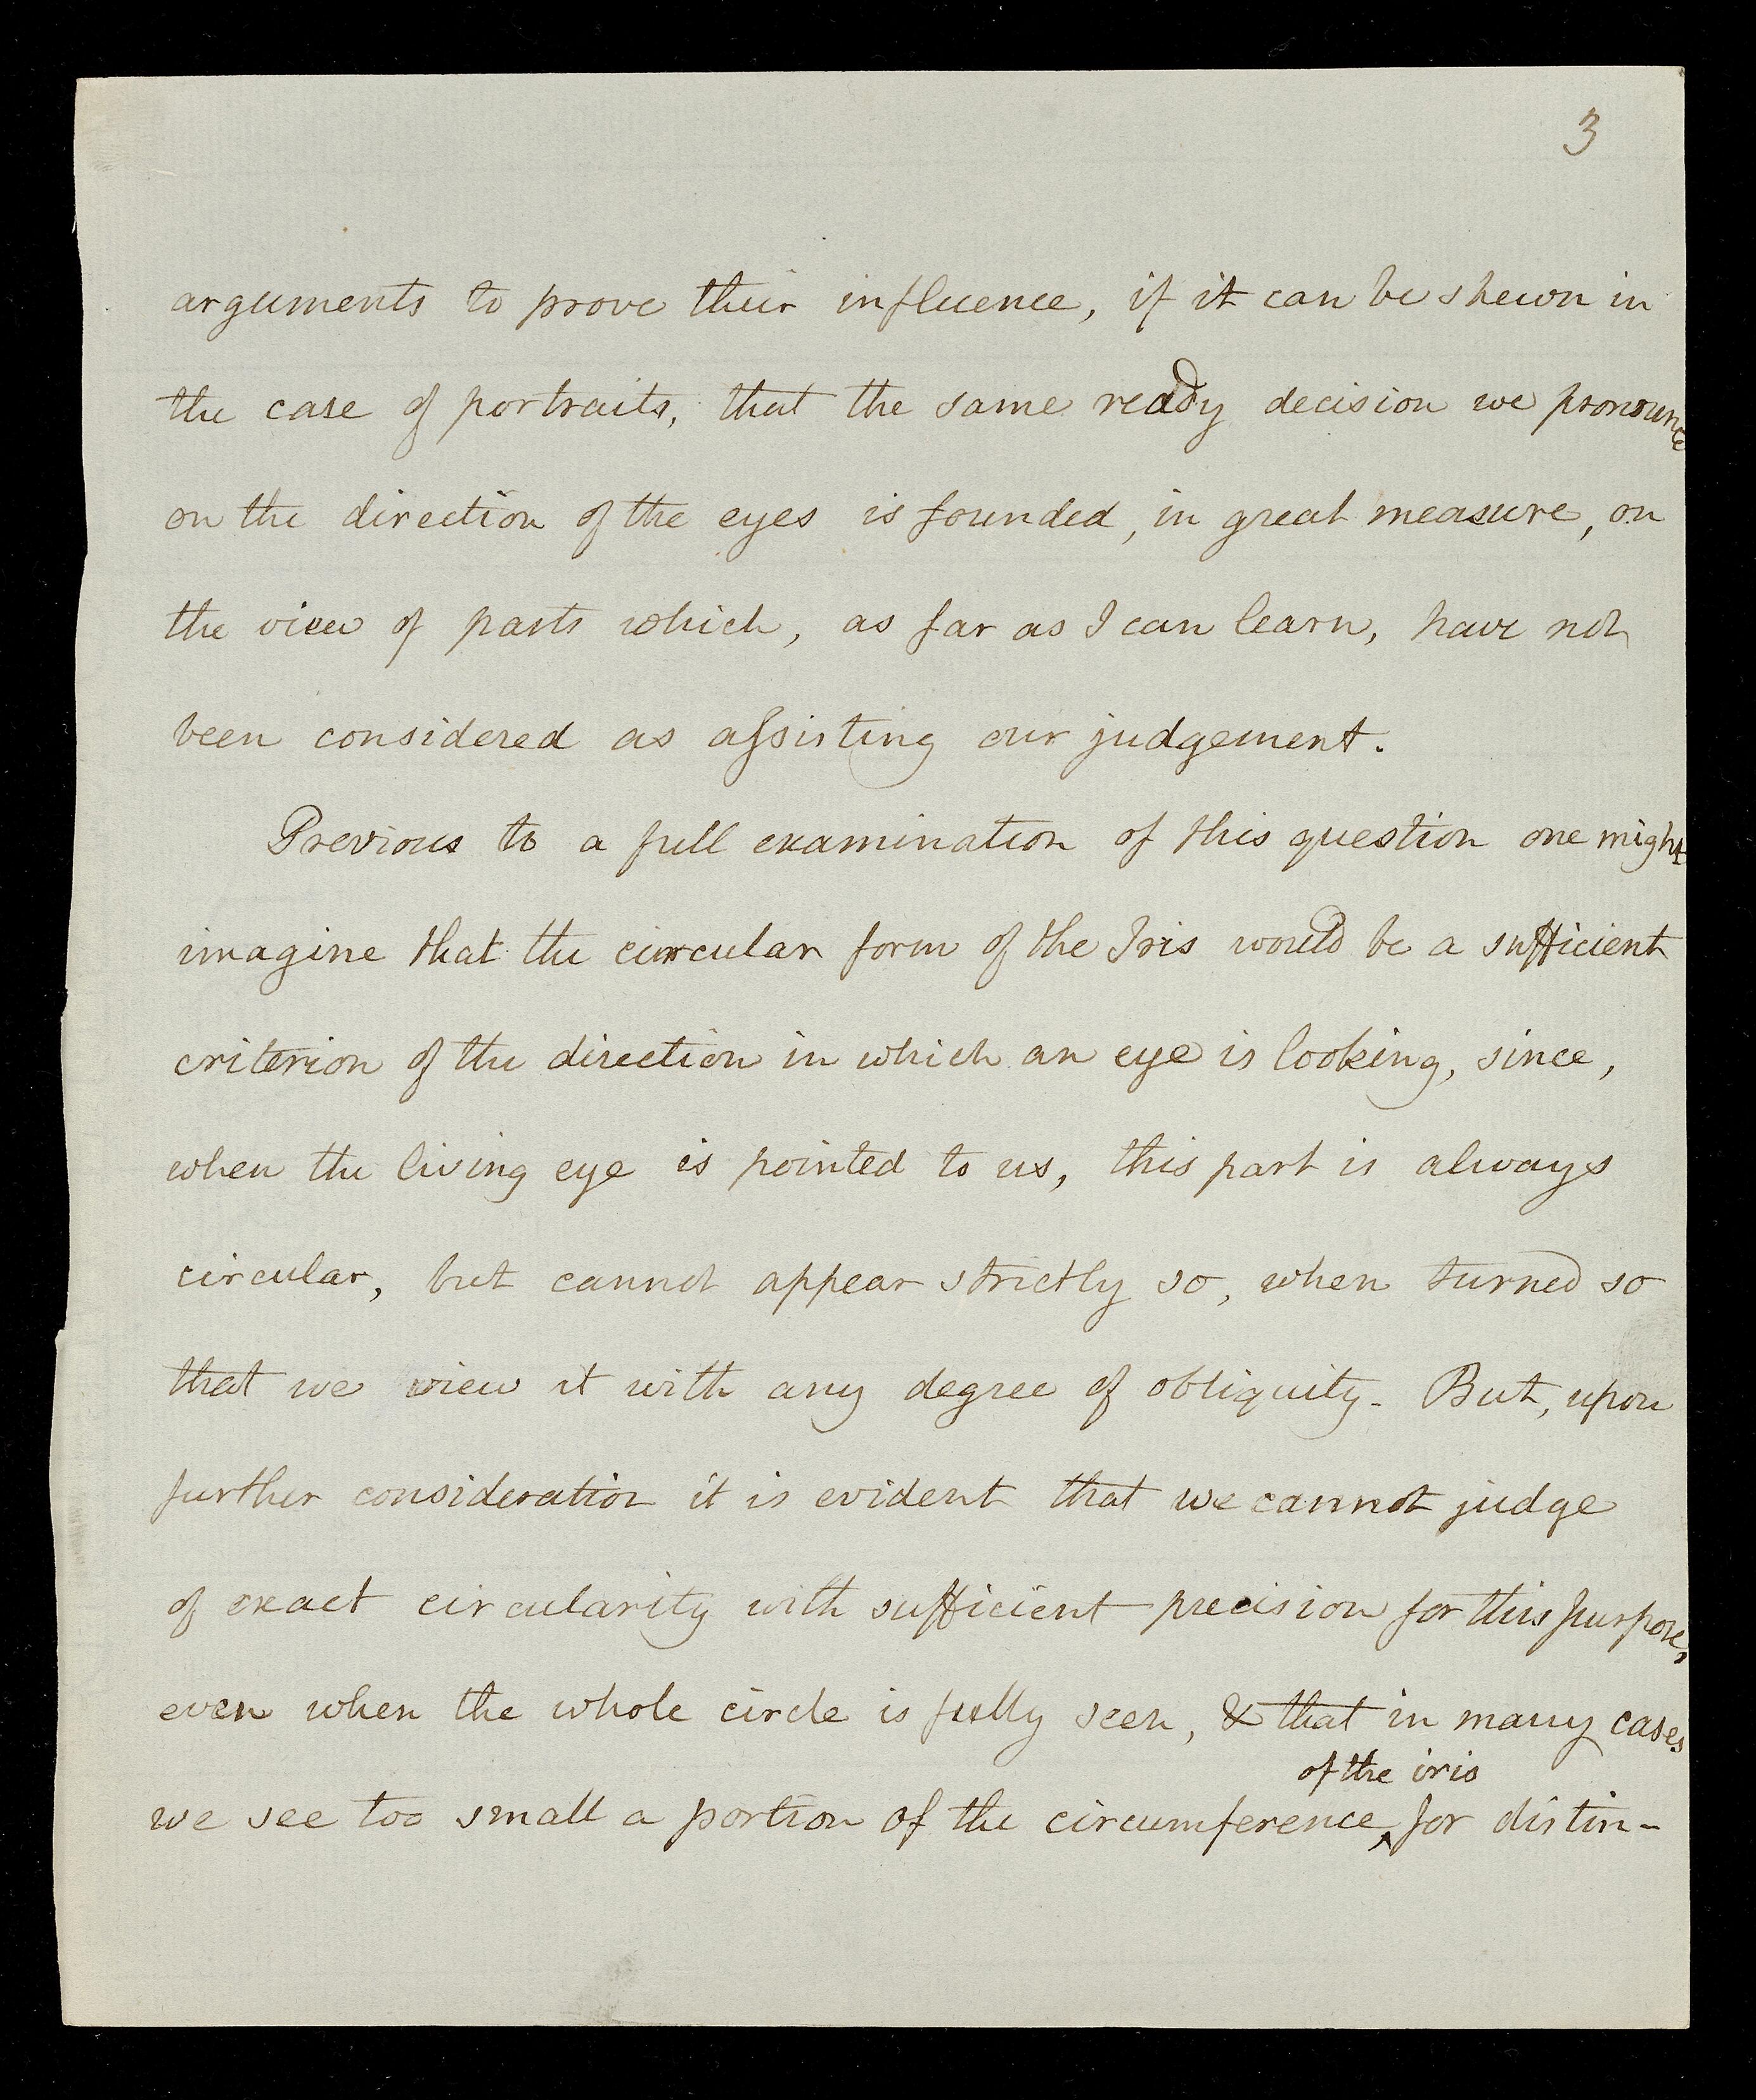 3
arguments to prove their influence, if it can be shewn in
the case of portraits, that the same ready decision we pronounce
on the direction of the eyes is founded, in great measure, on
the view of parts which, as far as I can learn, have not
been considered as aſsisting our judgement.
Previous to a full examination of this question one might
imagine that the circular form of the Iris would be a sufficient
criterion of the direction in which an eye is looking, since,
when the living eye is pointed to us, this part is always
circular, but cannot appear strictly so, when turned so
that we view it with any degree of obliquity. But, upon
further consideration it is evident that we cannot judge
of exact circularity with sufficient precision for this purpose,
even when the whole circle is fully seen, & that in many cases
of the iris
we see too small a portion of the circumference ‸ for distin-